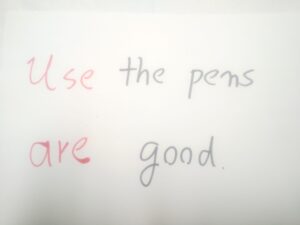 Use the pens
are good.